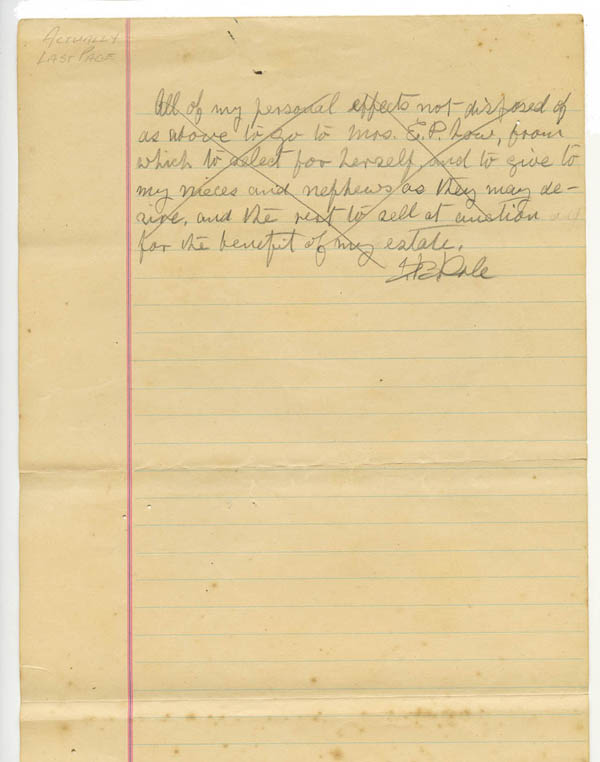 ACTUALLY
LAST PAGE
All of my personal effects not disposed of
as above to go to Mrs. E. P. Low, from
which to select for herself, and to give to
my nieces and nephews as they may de-
sire, and the rest to sell at auction
for the benefit of my estate.
Dole